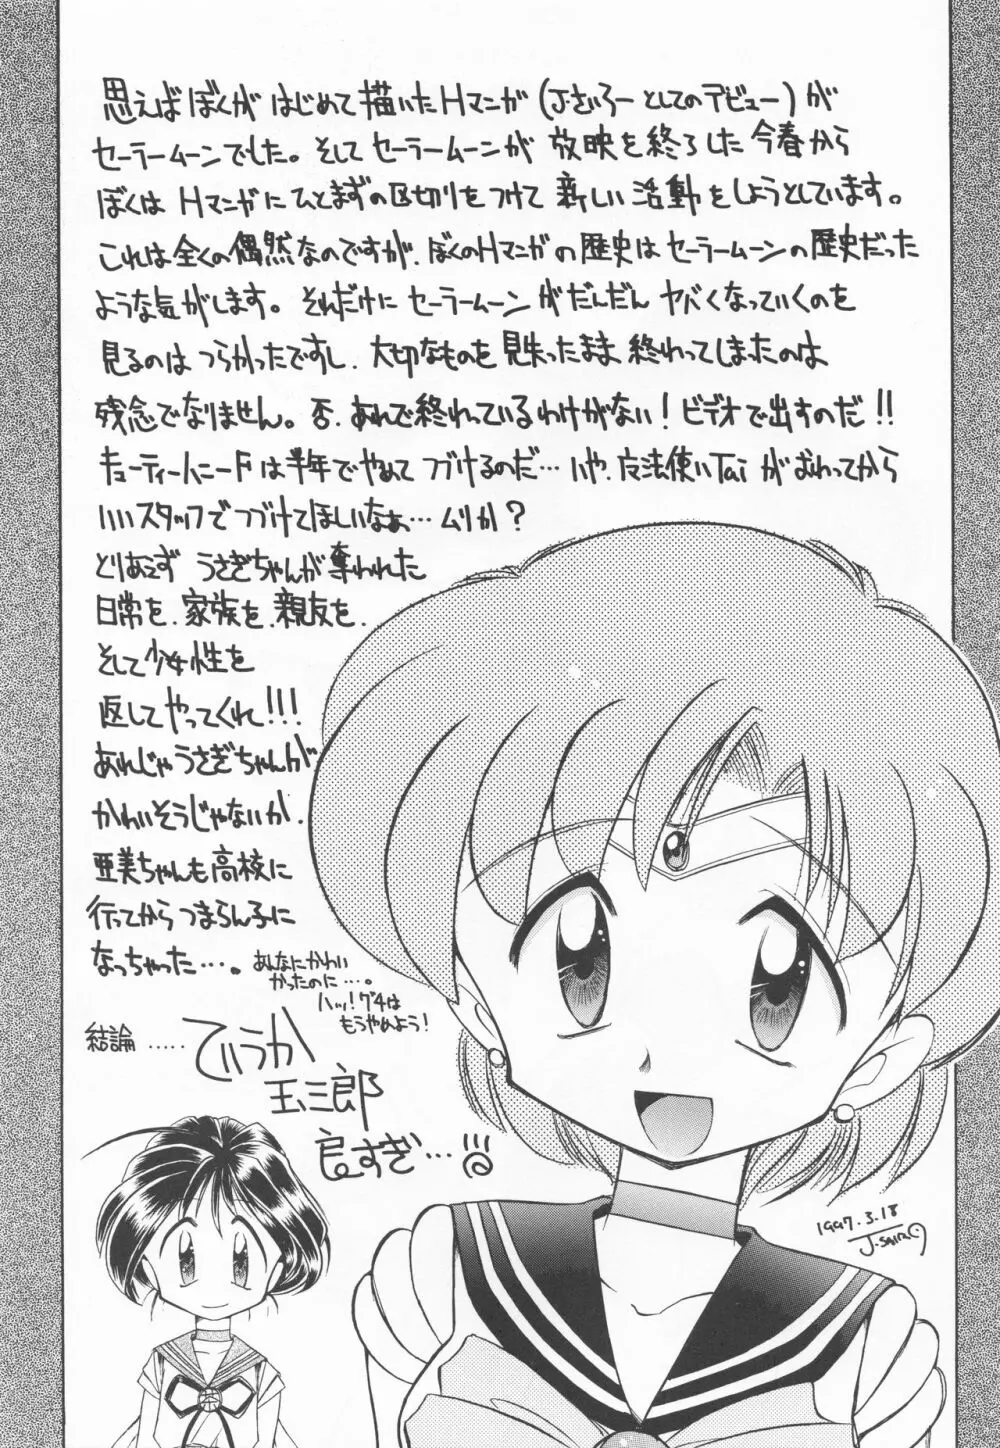 思えばぼくがはじめて描いたHマンガ(J.さいろーとしてのデビュー)が
セーラームーンでした。そしてセーラームーンが放映を終了した今春から
ぼくはHマンガにひとまずの区切りをつけて新しい活動をしようとしています。
これは全くの偶然なのですが、ぼくのHマンガの歴史はセーラームーンの歴史だった
ような気がします。それだけにセーラームーンがだんだんヤバくなっていくのを
見るのはつらかったですし、大切なものを見失ったまま終わってしまったのは
残念でなりません。否、あれで終われているわけがない!ビデオで出すのだ!!
キューティーハニーFは半年でやめてつづけるのだ…いや、魔法使いTaiがおわってから
いいスタッフでつづけてほしいなぁ…ムリか?
とりあえずうさぎちゃんが奪われた
日常を、家族を、親友を、
そして少女性を
返してやってくれ!!!
あれじゃうさぎちゃんが
かわいそうじゃないか、
亜美ちゃんも高校に
行ってからつまらん子に
なっちゃった…。
あんなにかわい
かったのに…。
ハッ!グチは
もうやめよう!
結論……
てゆうか
玉三郎
良すぎ…
1997.3.18
J.SAIRO